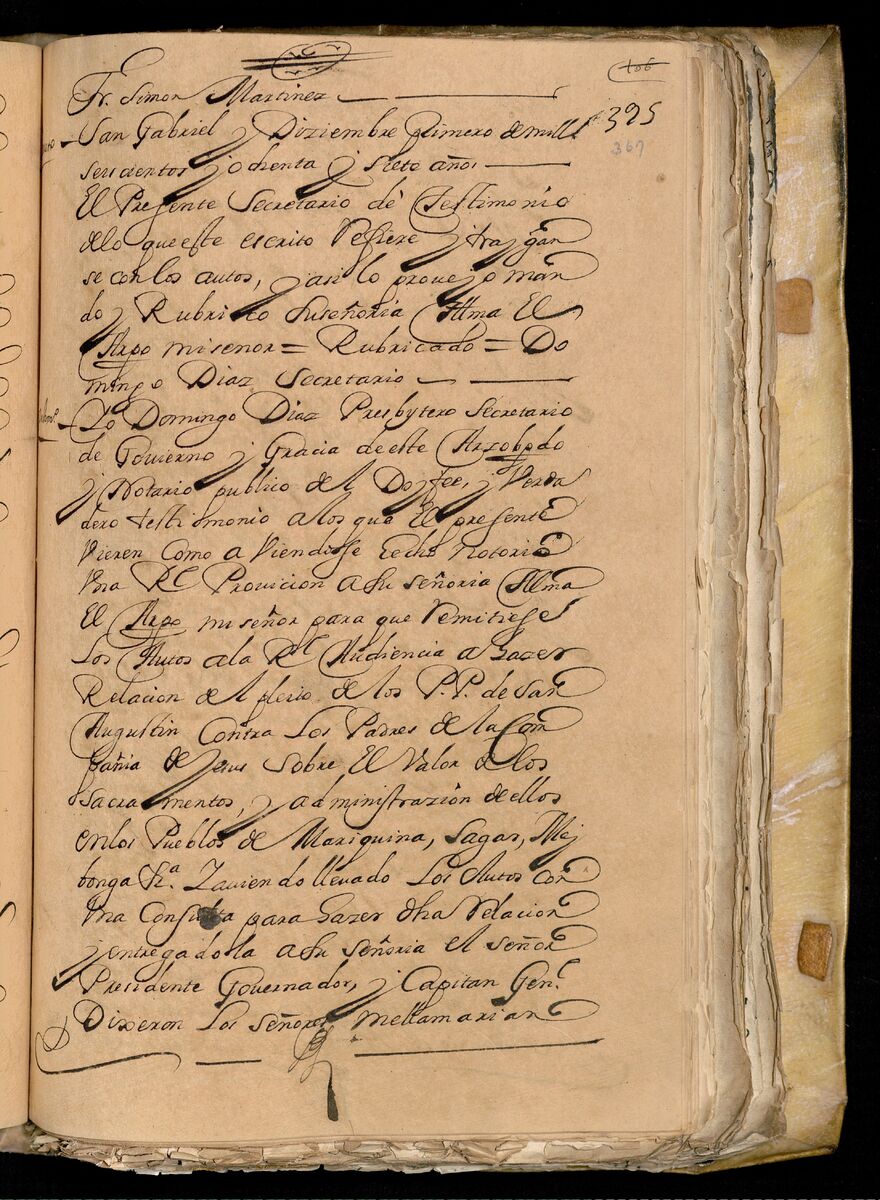 106
Fr. Simon Martinez
395
367
San Gabriel y Diziembre primero de mill
seiscientos y ochenta y siete años
El Presente Secretario dé testimonio
delo que este escrito Refiere y traygan
se con los autos, y asi lo proveyo man
do y Rubrico Suseñoria Illma El
Arzpo miseñor = Rubricado = Do
mingo Diaz Secretario
Yo Domingo Diaz Presbytero Secretario
de Govierno y Gracia de este Arzobpdo
y Notario publico del Doy fee, y Verda
dero testimonio alos que El presente
Vieren Como aViendosse Hecho notoria
Vna Rl Provicion a su señoria Illma
El Arzpo miseñor para que Remitiese
Los Autos ala Rl Audiencia a Hazer
Relacion del pleito de los P.P. de San
Augustin Contra Los Padres de la Com
pañia de Jesus sobre El Valor de los
Sacramentos, y administrazión de ellos
enlos Pueblos de Mariquina, Sagar, May
bonga &a. Haviendo llevado Los Autos con
Vna Consulta para Hazer dha Relacion
y entregadola a su señoria el señor
Presidente Governador, y Capitan Genl
Dixeron Los Señores mellamarian